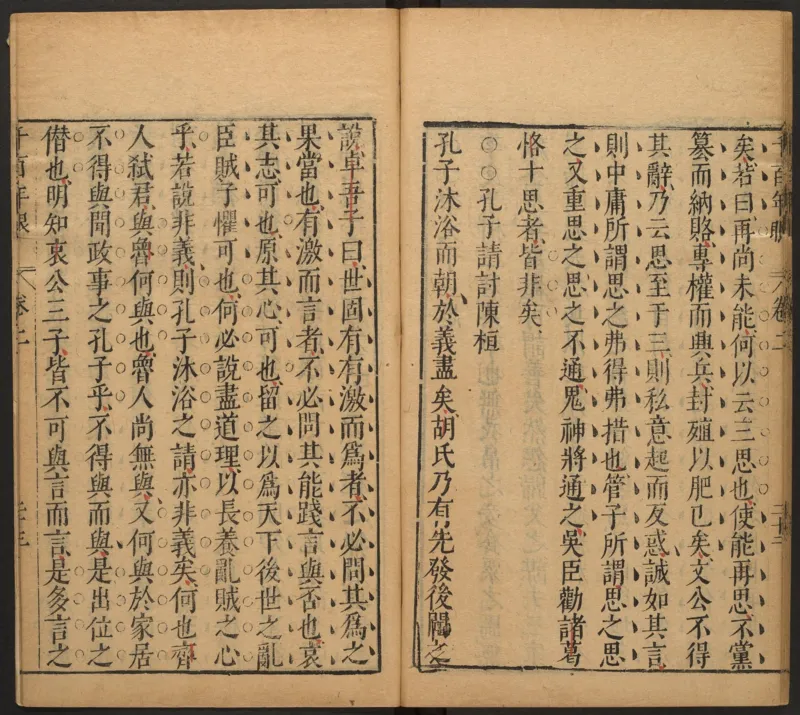 矣若曰再尚未能何以云三思也使能再思不黨
篡而納賂專權而興兵封殖以肥己矣文公不得
其辭乃云思至于三則私意起而反惑誠如其言
則中庸所謂思之弗得弗措也管子所謂思之思
之又重思之思之不通鬼神將通之吳臣勸諸葛
恪十思者皆非矣
○○孔子請討陳桓
孔子沐浴而朝於義盡矣胡氏乃有先發後聞之
卷二
二十二
說卓吾子曰世固有有激而爲者不必問其爲之
果當也有激而言者不必問其能踐言與否也哀
其志可也原其心可也留之以爲天下後世之亂
臣賊子懼可也何必說盡道理以長養亂賊之心
乎若說非義則孔子沐浴之請亦非義矣何也齊
人弒君與魯何與也魯人尚無與又何與於家居
不得與聞政事之孔子乎不得與而與是出位之
僣也明知哀公三子皆不可與言而言是多言之
千百年眼
卷二